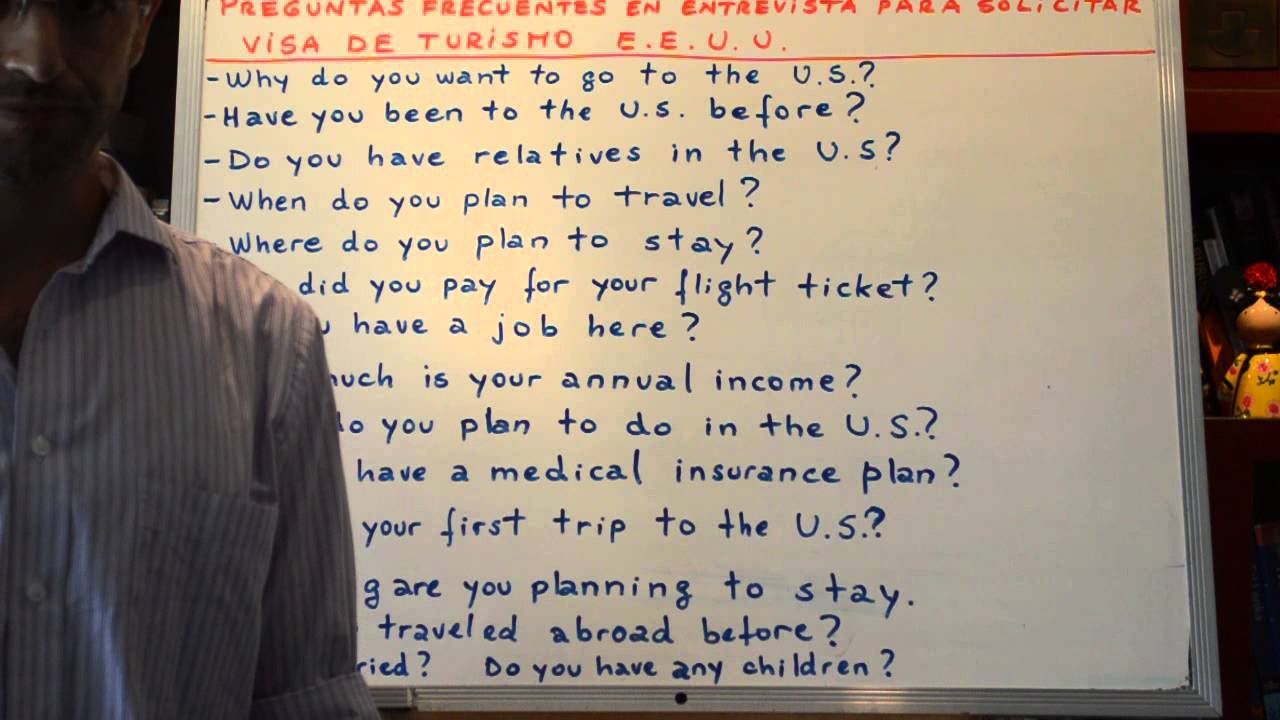 PREGUNTAS FRECUENTES EN ENTREVISTA PARA SOLICITAR
VISA DE TURISMO E.E.U.U.
-Why do you want to go to the U.S.?
-Have you been to the U.S. before?
-Do you have relatives in the U.S?
-When do you plan to travel?
Where do you plan to stay?
did you pay for your flight ticket?
have a job here?
much is your annual income?
do you plan to do in the U.S.?
have a medical insurance plan?
your first trip to the U.S.?
g are you planning to stay.
traveled abroad before?
ried? Do you have any children?